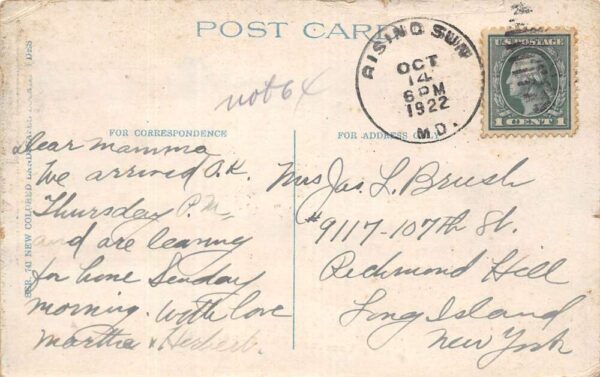 POST CARD
RISING SUN
OCT
14
6 PM
1922
MD.
U.S. POSTAGE
1 CENT 1
not 64
FOR CORRESPONDENCE
FOR ADDRESS ONLY
SER. 741 NEW COLORED
Dear Mamma
We arrived O.K.
Thursday P.M,
and are leaving
for home Sunday
morning. With love
Martha & Herbert.
Mrs Jas. L. Brush
#9117-107th St.
Richmond Hill
Long Island
New York